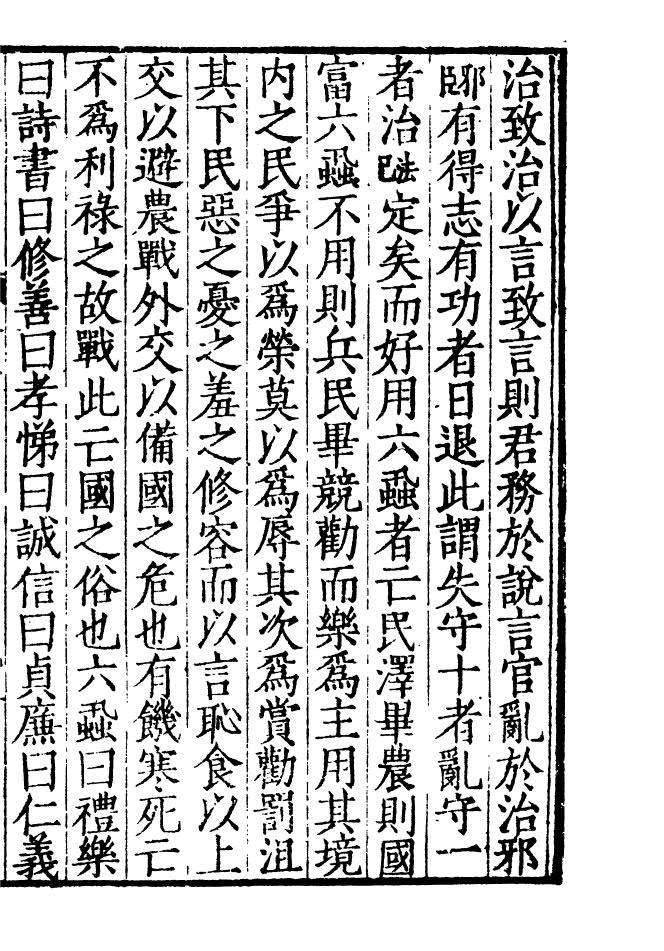 治致治以言致言則君務於說言官亂於治邪
邪臣有得志有功者日退此謂失守十者亂守一
者治法已定矣而好用六蝨者亡民澤畢農則國
富六蝨不用則兵民畢競勸而樂爲主用其境
内之民爭以爲榮莫以爲辱其次爲賞勸罰沮
其下民惡之憂之羞之修容而以言恥食以上
交以避農戰外交以備國之危也有饑寒死亡
不爲利祿之故戰此亡國之俗也六蝨曰禮樂
曰詩書曰修善曰孝悌曰誠信曰貞廉曰仁義